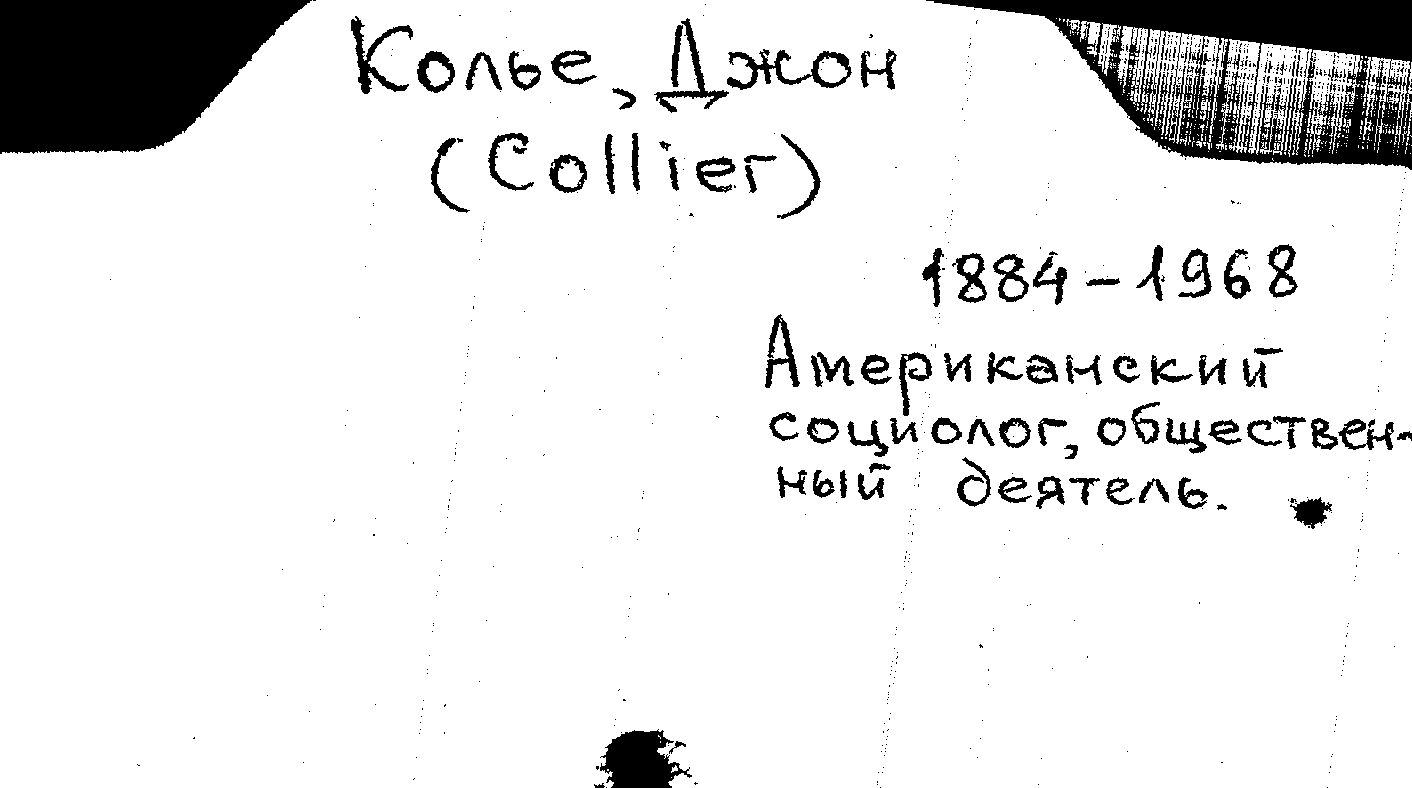 Колье, Джон
(Collier)
1884-1968
Американский
социолог, обществен-
ный деятель.